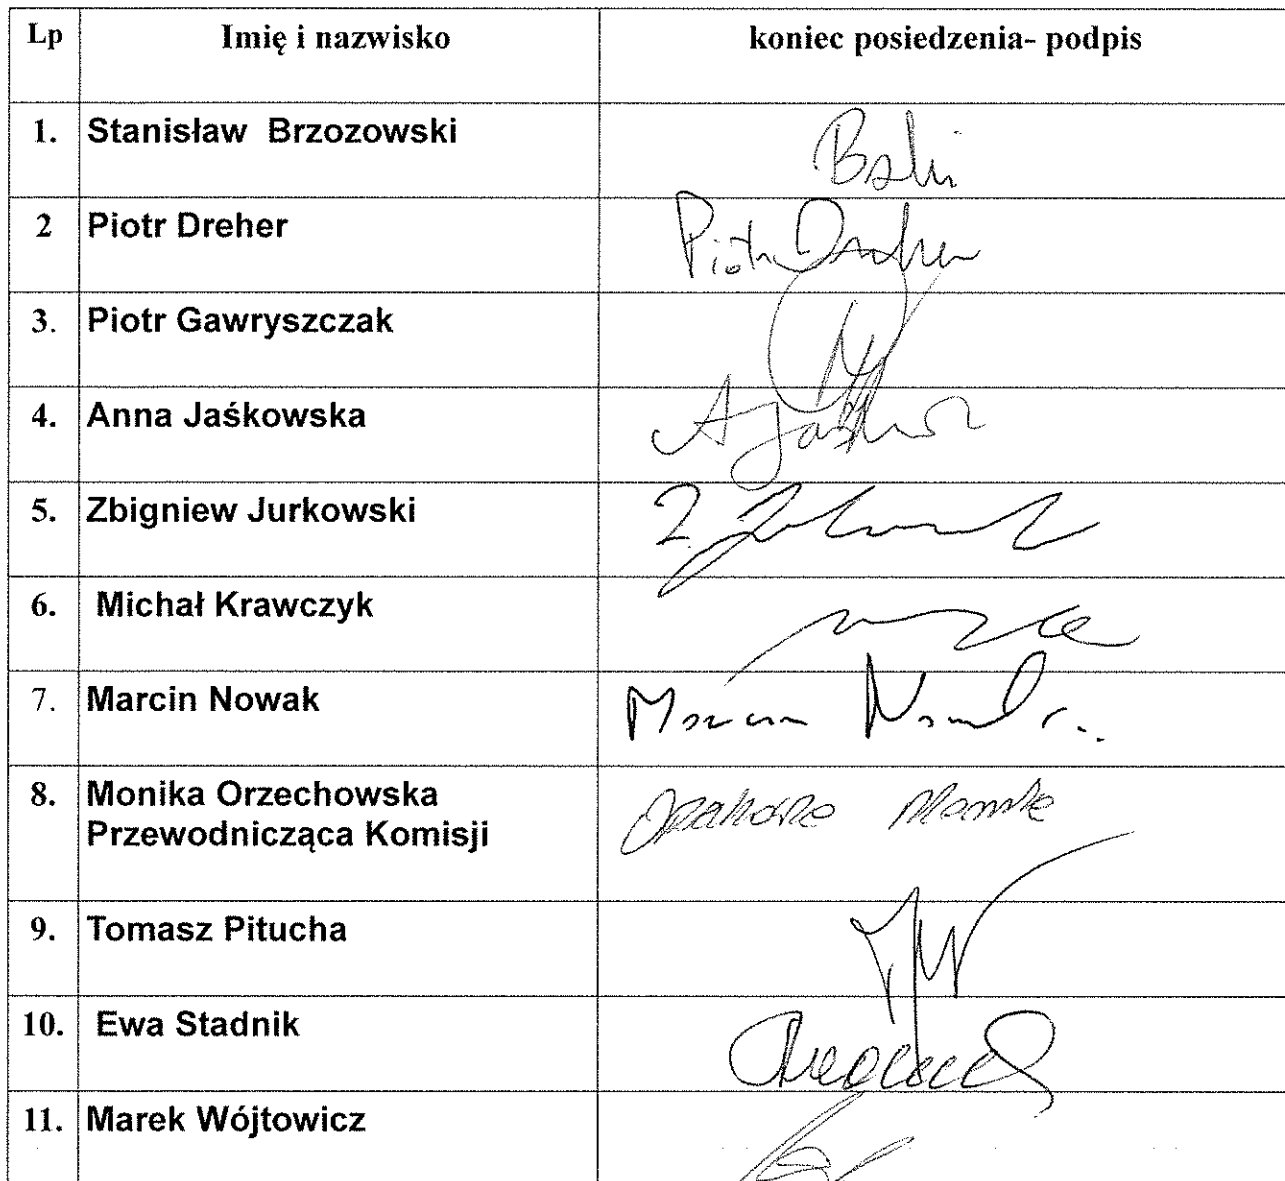 Lp Imię i nazwisko koniec posiedzenia- podpis
1. Stanisław Brzozowski
2 Piotr Dreher Piotr Dreher
3. Piotr Gawryszczak
4. Anna Jaśkowska
5. Zbigniew Jurkowski
6. Michał Krawczyk
7. Marcin Nowak Marcin Nowak
8. Monika Orzechowska
Przewodnicząca Komisji
9. Tomasz Pitucha
10. Ewa Stadnik
11. Marek Wójtowicz